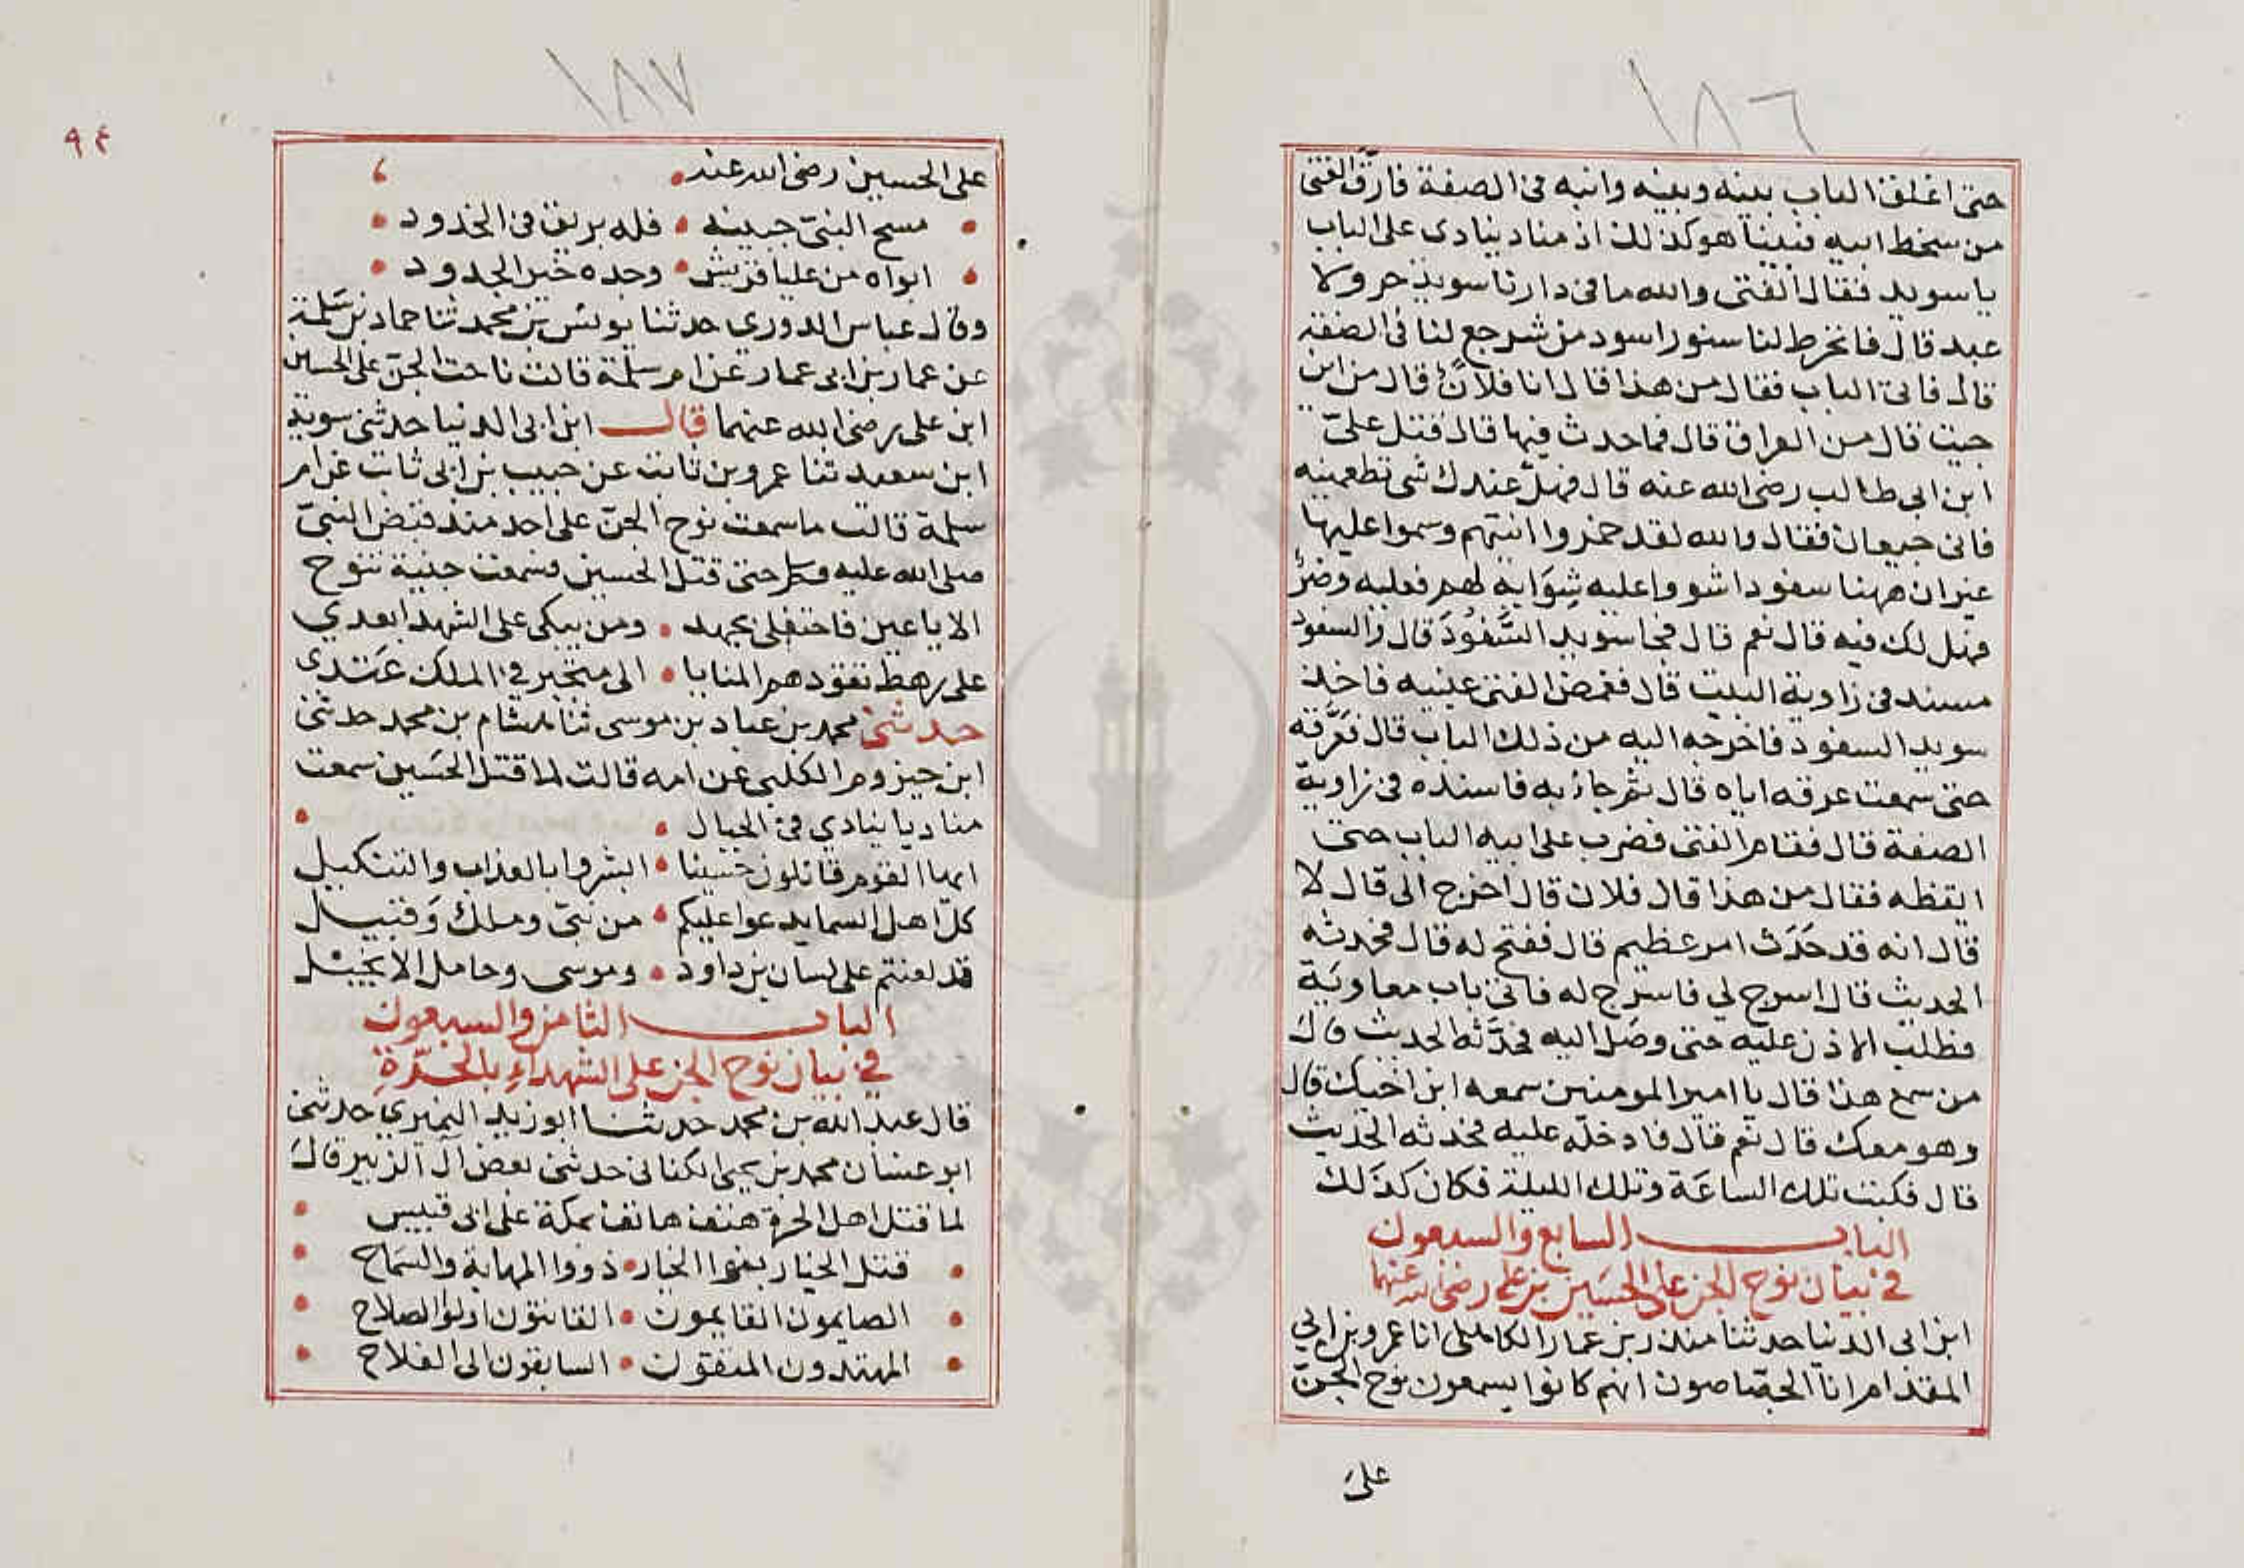 ١٨٦
حتى اغلق الباب بينه وبينه وانبه فى الصفة فارق الفتى
من سخط ابيه فبينا هو كذلك اذ مناد ينادى على الباب
يا سويد فقال الفتى والله ما فى دارنا سويد حر ولا
عبد قال فانخرط لنا سنور اسود من شرجع لنا فى الصفة
قال فاتى الباب فقال من هذا قال انا فلان قال من اين
جيت قال من العراق قال فما حدث فيها قال قتل علىّ
ابن ابى طالب رضى الله عنه قال فهل عندك شى تطعمنيه
فانى جيعان فقال والله لقد خمروا انيتهم وسموا عليها
غيران ههنا سفودا شووا عليه شِوَاية لهم فعليه وضر
فهل لك فيه قال نعم قال فجا سويد السَّفُودَ قال والسفود
مسند فى زاوية البيت قال فغمض الفتى عينيه فاخذ
سويد السفود فاخرجه اليه من ذلك الباب قال فعَرَّقه
حتى سمعت عرقه اياه قال ثم جاء به فاسنده فى زاوية
الصفة قال فقام الفتى فضرب على ابيه الباب حتى
ايقظه فقال من هذا قال فلان قال اخرج الى قال لا
قال انه قد حَدَث امر عظيم قال ففتح له قال فحدثه
الحديث قال اسرج لي فاسرج له فاتى باب معاوية
فطلب الاذن عليه حتى وصل اليه فحدَّثه الحديث قال
من سمع هذا قال يا امير المومنين سمعه ابن اخيك قال
وهو معك قال نعم قال فادخله عليه فحدثه الحديث
قال فكتب تلك الساعة وتلك الليلة فكان كذلك
الباب السابع والسبعون
في بيان نوح الجن على الحسَين بن على رضى الله عنهما
ابن ابى الدنيا حدثنا منذر بن عمار الكاملى انا عمرو بن ابي
المقدام انا الجصاصون انهم كانوا يسمعون نوح الجنّ
على
١٨٧
٩٤
على الحسين رضى الله عنه
مسح النبىّ جبينه • فله بريق فى الخدود
ابواه من عليا قريش • وجده خير الجدود
وقال عباس الدورى حدثنا يونس بن محمد ثنا حماد بن سَلمة
عن عمار بن ابى عمار عن ام سلمة قالت ناحت الجنّ على الحسين
ابن على رضى الله عنهما قال ابن ابى الدنيا حدثنى سويد
ابن سعيد ثنا عمرو بن ثابت عن حبيب بن ابى ثابت عن ام
سلمة قالت ما سمعت نوح الجنّ على احد منذ قبض النبىّ
صلى الله عليه وسلم حتى قتل الحسين فسمعت جنية تنوح
الا يا عين فاحتفلى بجهد • ومن يبكى على الشهدا بعدي
على رهط تقودهم المنايا • الى متجبر في الملك عَبدى
حدثنى محمد بن عباد بن موسى ثنا هشام بن محمد حدثنى
ابن حيزوم الكلبى عن امه قالت لما قتل الحسَين سمعت
مناديا ينادي فى الجبال •
ايها القوم قاتلون حسينا • ابشروا بالعذاب والتنكيل
كلّ اهل السما يدعوا عليكم • من نبىّ وملك وقبيل
قد لعنتم على لسان بن داود • وموسى وحامل الانجيل
الباب الثامن والسبعون
في بيان نوح الجن على الشهداءِ بالحَرّةِ
قال عبد الله بن محمد حدثنا ابو زيد النميري حدثنى
ابو غسان محمد بن يحيى الكنانى حدثنى بعض آل الزبير قال
لما قتل اهل الحرة هتف هاتف بمكة على ابى قبيس
قتل الخيار بنوا الخيار • ذووا المهابة والسَماح
الصايمون القايمون • القانتون اولو الصلاح
المهتدون المتقون • السابقون الى الفلاح